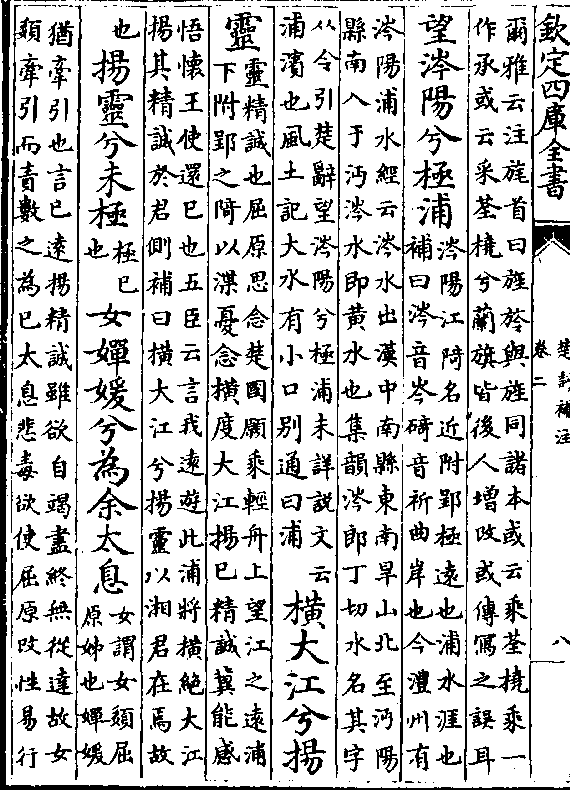 欽定四庫全書
楚詞補注
卷二
八
爾雅云注旄首曰旌於與旌同諸本或云乘荃橈乘一
作承或云采荃橈兮蘭旗皆後人增改或傳寫之誤耳
望涔陽兮極浦
涔陽江碕名近附郢極遠也浦水涯也
補曰涔音岑碕音祈曲岸也今澧州有
涔陽浦水經云涔水出漢中南縣東南旱山北至沔陽
縣南入于沔涔水即黄水也集韻涔郎丁切水名其字
从令引楚辭望涔陽兮極浦未詳説文云
浦濱也風土記大水有小口别通曰浦
橫大江兮揚
靈
靈精誠也屈原思念楚國願乘輕舟上望江之遠浦
下附郢之碕以渫憂念橫度大江揚已精誠冀能感
悟懷王使還已也五臣云言我遠遊此浦將橫絶大江
揚其精誠於君側補曰橫大江兮揚靈以湘君在焉故
也
揚靈兮未極
極已
也
女嬋媛兮為余太息
女謂女頟屈
原姊也嬋媛
猶牽引也言已遠揚精誠雖欲自竭盡終無從達故女
頟牽引而責數之為已太息悲毒欲使屈原改性易行